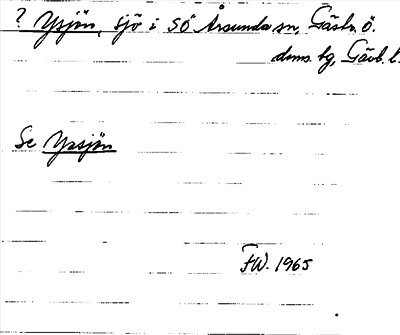 ? Ysjön, sjö i SÖ Årsunda sn, Gästr. Ö.
doms. tg, Gävl. l.
Se Yrsjön
FW. 1965